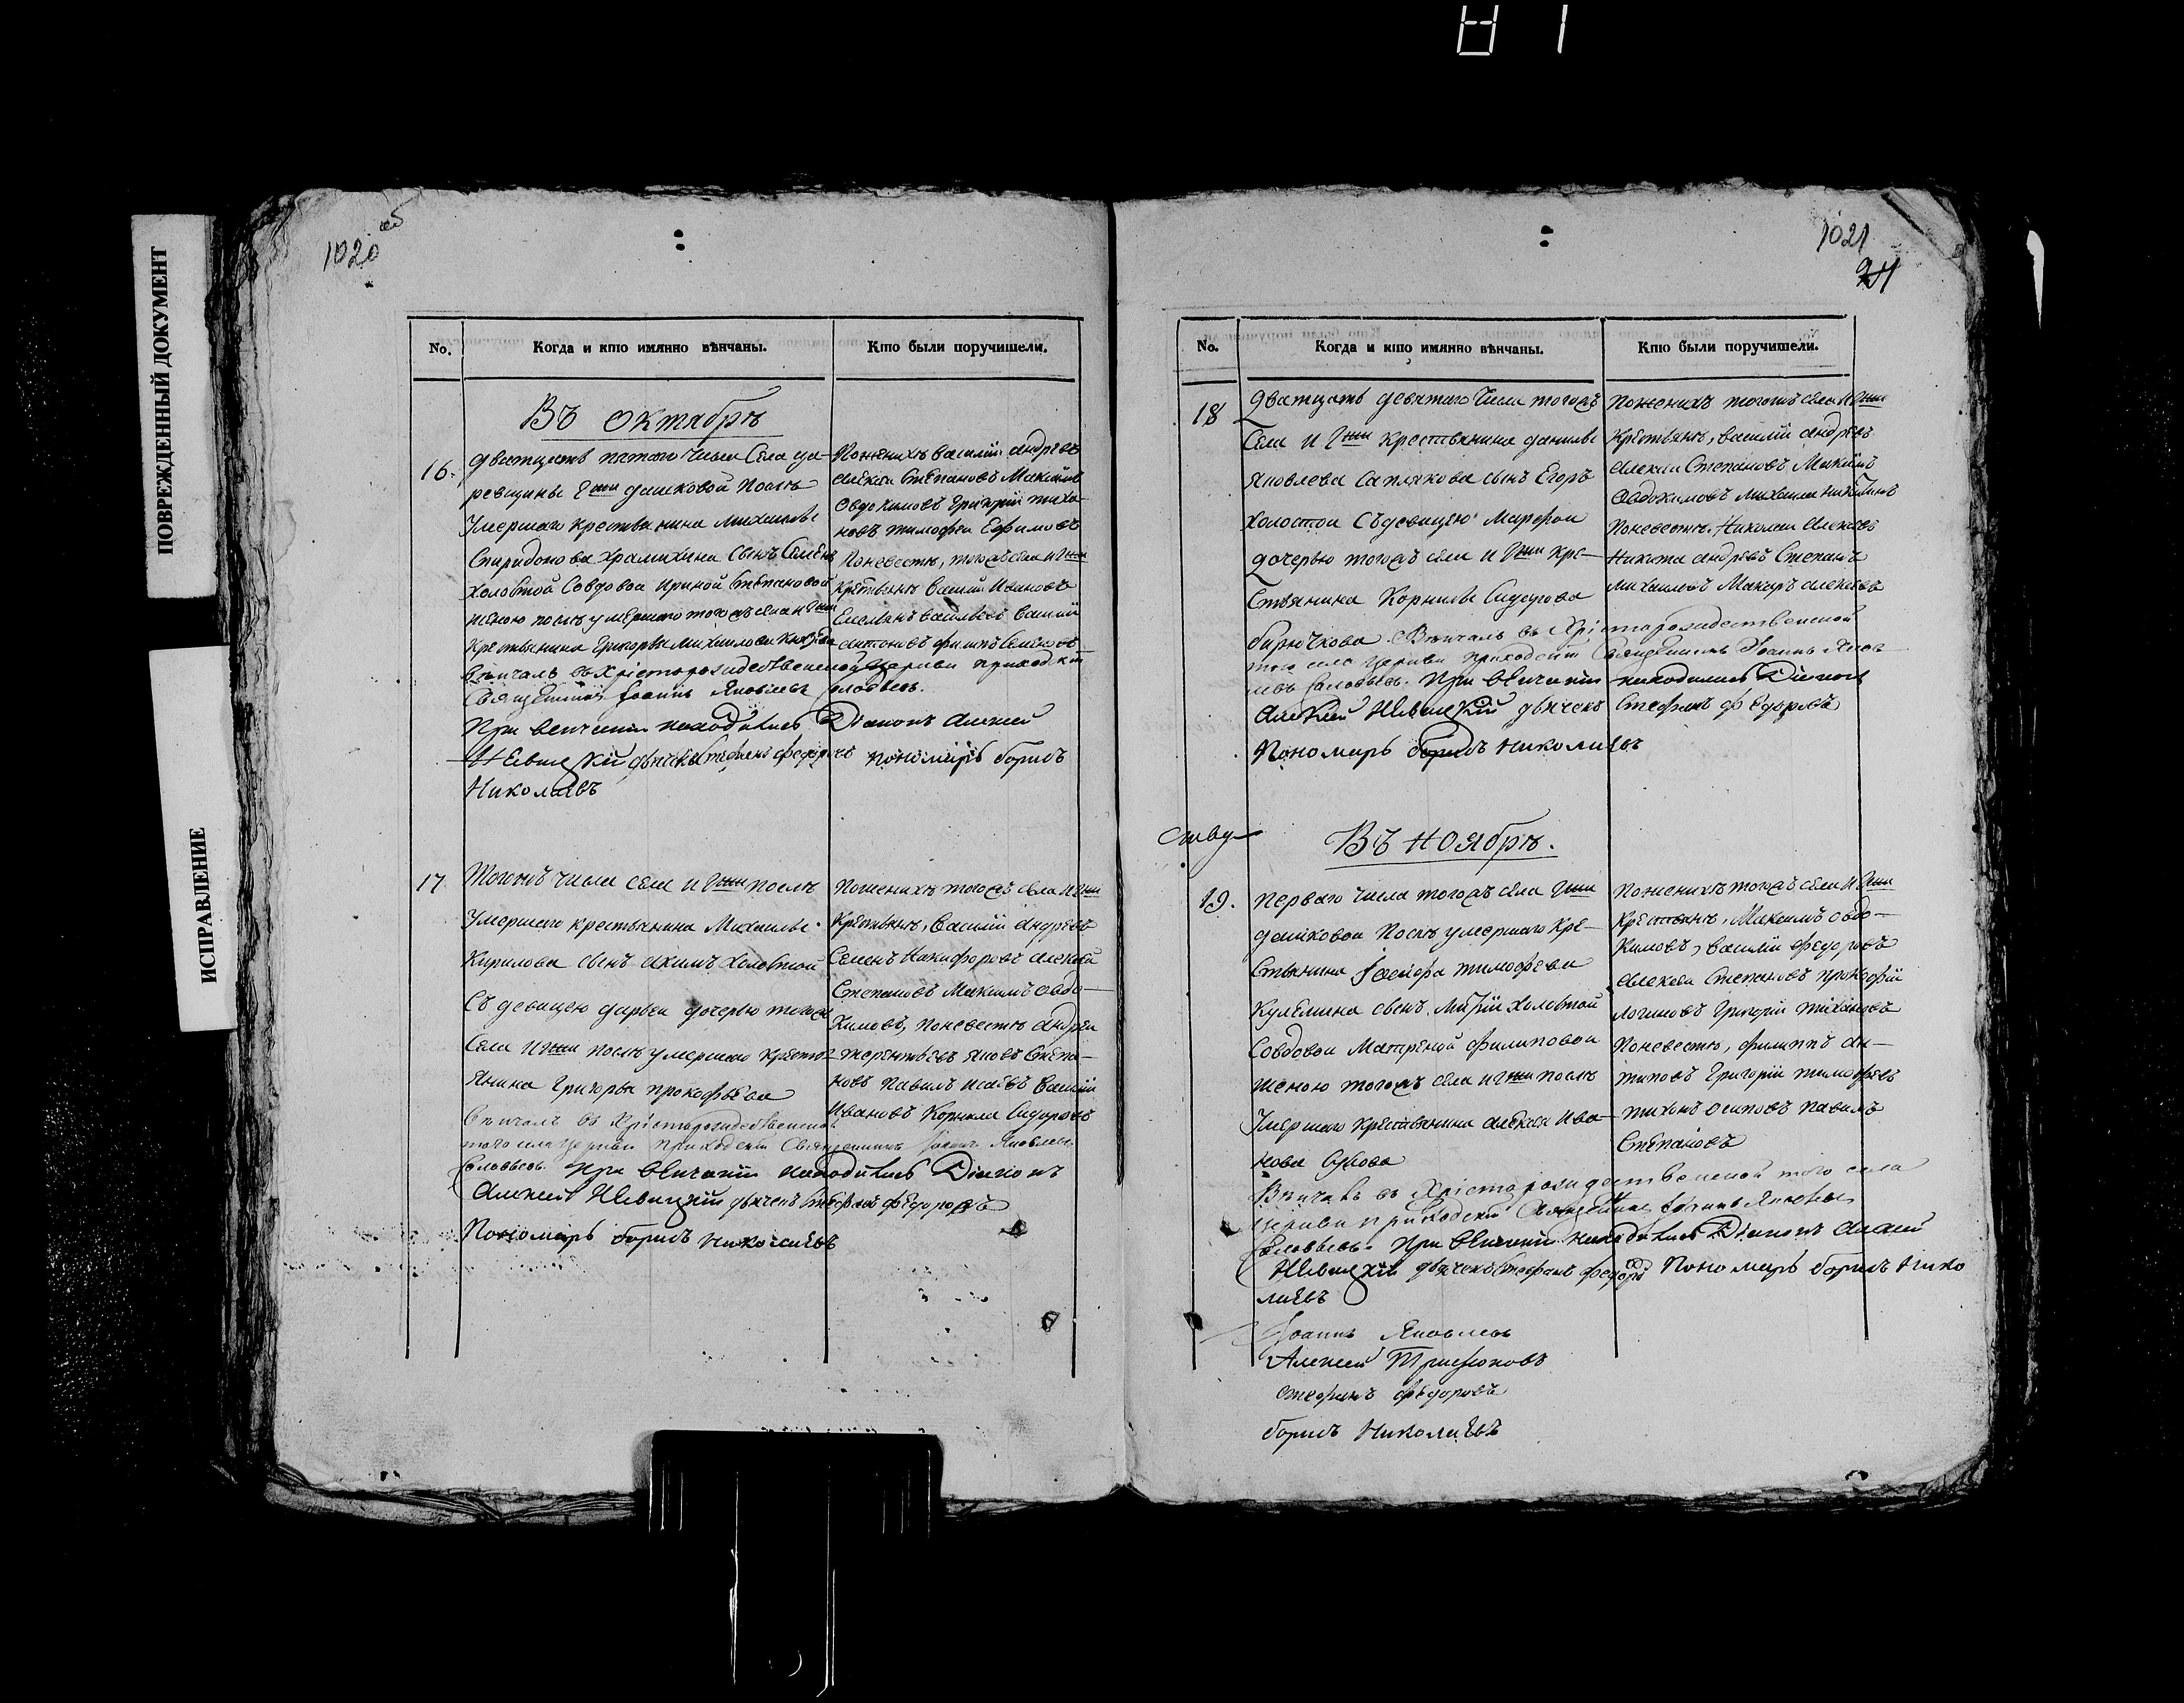 ПОВРЕЖДЕННЫЙ ДОКУМЕНТ
ИСПРАВЛЕНИЕ
1020 об
No.
Когда и кто имянно вѣнчаны.
Кто были поручишели.
Въ октябрѣ
16.
дватцать пятаго числа села ца-
ревщины Гжи дашковой послѣ
Умершаго крестьянина Михаилы
Спиридонова Храмихина сынъ Семенъ
холостой Совдовой Ириной Степановой
женою послѣ умершаго тогожъ села и Гжи
крестьянина Григорья Михаилова
вѣнчалъ въ Христорождественской церкви приходскій
Священникъ Іоаннъ Яковлевъ Соловьевъ.
При венчаніи находились Діаконъ Алексей
Невицкій дьячекъ Стефанъ федоровъ пономарь борисъ
Николаевъ
Поженихѣ василій андреевъ
алексеи Степановъ Максимъ
овдокимовъ Григорій тиха-
новъ тимофеи Ефимовъ
Поневесте, тогожъ села и Гжи
крестьянъ василій Ивановъ
Емельянъ васильевъ василій
антоновъ филипъ Семеновъ
17.
Тогожъ числа села и Гжи послѣ
Умершаго крестьянина Михаилы
Кирилова сынъ акимъ холостой
Съ девицею дарьеи дочерью тогожъ
села и Гжи послѣ умершаго крестъ-
янина Григорья прокофьева
Вѣнчалъ въ Христорождественской
того села церкви приходскій Священникъ Іоаннъ Яковлевъ
Соловьевъ. При венчаніи находились Діаконъ
Алексей Невицкій дьячекъ Стефанъ федоровъ
Пономарь борисъ николаевъ
Поженихѣ тогожъ села и Гжи
крестьянъ, василій андреевъ
Семенъ Никифоровъ алексей
Степановъ Максимъ овдо-
кимовъ, поневесте андреи
терентьевъ яковъ Степа-
новъ павилъ исаевъ василій
Ивановъ Корнила Сидоровъ
1021
No.
Когда и кто имянно вѣнчаны.
Кто были поручишели.
18
Дватцать девятаго Числа тогожъ
Села и Гжи крестьянина данилы
Яковлева сынъ Егоръ
холостои Съдевицею Марфои
дочерью тогожъ села и Гжи кре-
стьянина Корнилы Сидорова
бирючкова. Вѣнчалъ въ Христорождественской
того села церкви приходскій Священникъ Іоаннъ Яков-
левъ Соловьевъ. При венчаніи находились Діаконъ
Алексей Невицкій дьячекъ Стефанъ федоровъ
Пономарь борисъ николаевъ
Поженихѣ тогожъ села и Гжи
Крестьянъ, василій андреевъ
алексеи Степановъ Максимъ
овдокимовъ михаила никитинъ
Поневесте. Николаи алексеевъ
Никита андреевъ Степанъ
михаиловъ Макаръ алексеевъ
Въ Ноябрѣ.
19.
перваго числа тогожъ села Гжи
дашковои Послѣ умершаго Кре-
стьянина тимофеева
сынъ холостой
Совдовои Матреной филиповои
женою тогожъ села и Гжи послѣ
умершаго крестьянина алексея Ива-
нова
Вѣнчалъ въ Христорождественской того села
церкви приходскій Священникъ Іоаннъ Яковлевъ
Соловьевъ. При венчаніи находились Діаконъ Алексей
Невицкій дьячекъ Стефанъ федоровъ Пономарь борисъ Нико
лаевъ
Поженихѣ тогожъ села и Гжи
Крестьянъ, Максимъ овдо-
кимовъ, василій федоровъ
алексеи Степановъ прокофій
логиновъ Григорій тихановъ
Поневесте, филиппъ ан-
типовъ Григорій тимофеевъ
тихонъ осиповъ павилъ
Степановъ
Іоаннъ Яковлевъ
Алексей Трифоновъ
стефанъ федоровъ
борисъ Николаевъ